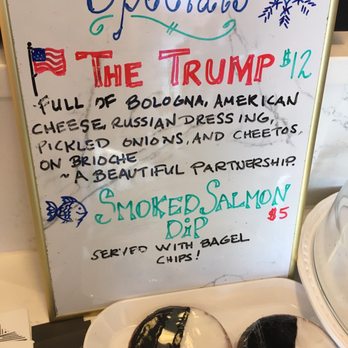 Specials
THE TRUMP $12
FULL OF BOLOGNA, AMERICAN
CHEESE, RUSSIAN DRESSING,
PICKLED ONIONS, AND CHEETOS,
ON BRIOCHE
~ A BEAUTIFUL PARTNERSHIP.
SMOKED SALMON
DIP $5
SERVED WITH BAGEL
CHIPS!